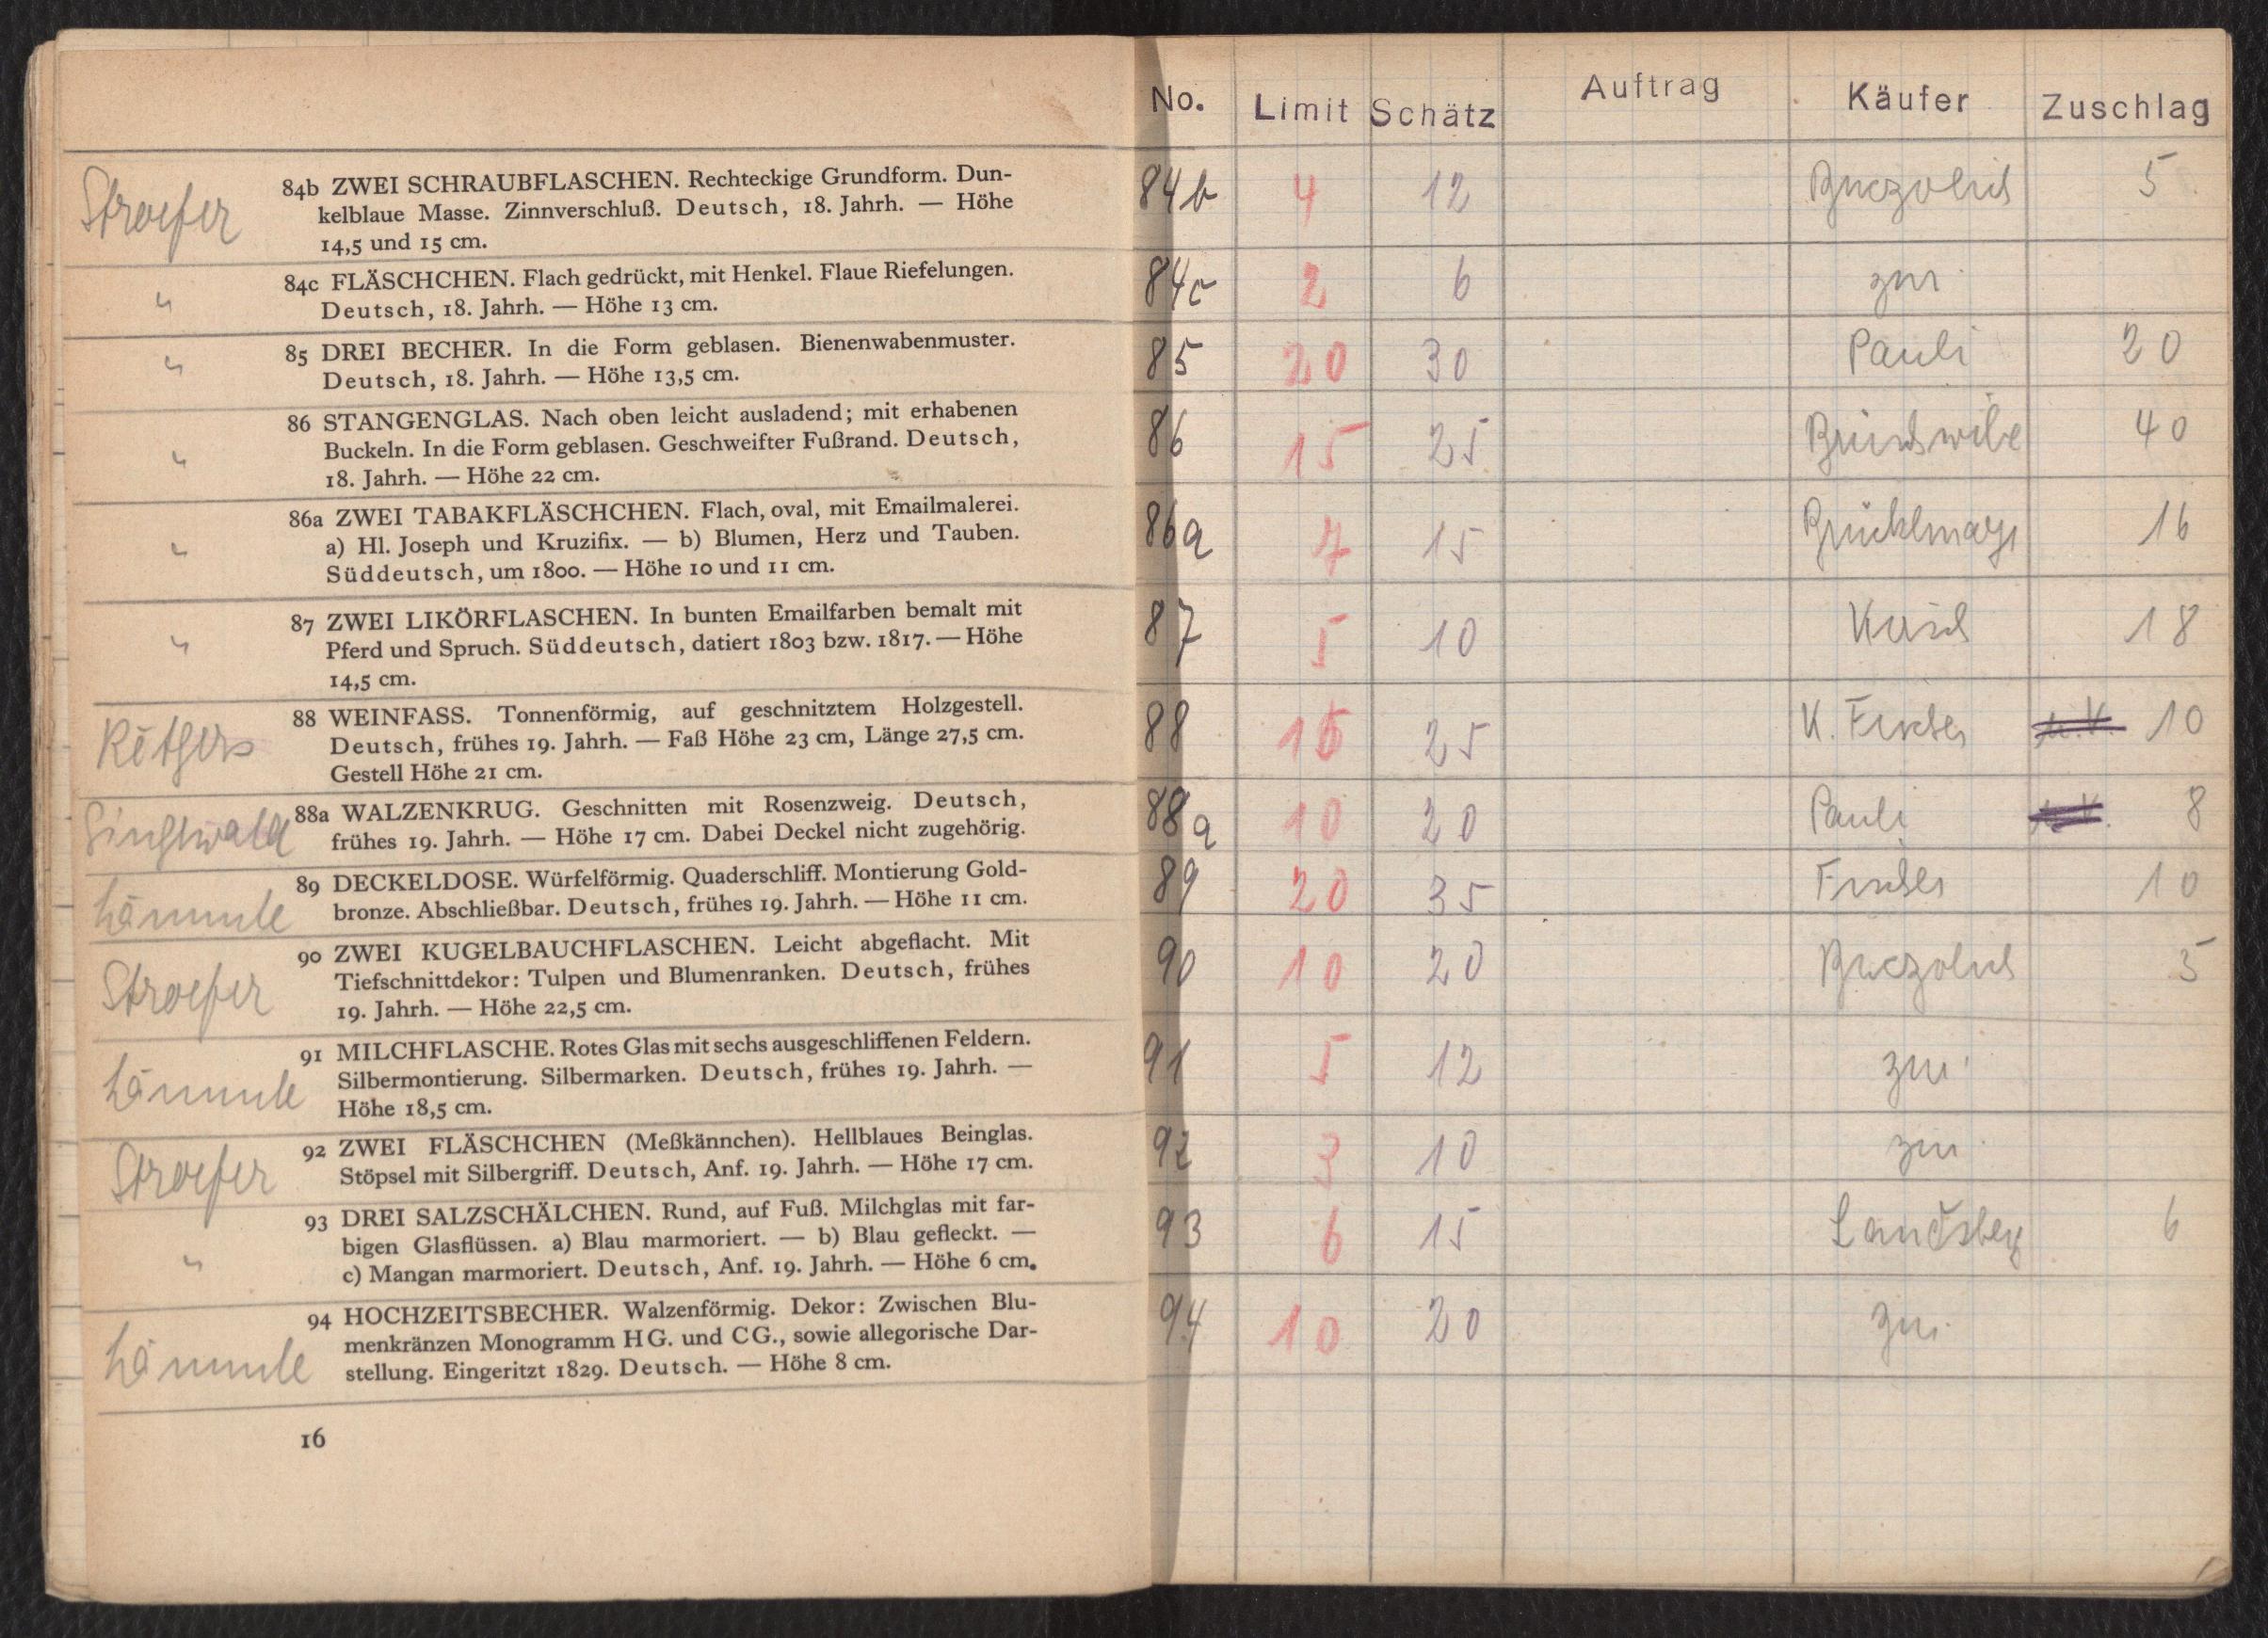 Stroefer
84b ZWEI SCHRAUBFLASCHEN. Rechteckige Grundform. Dun-
kelblaue Masse. Zinnverschluß. Deutsch, 18. Jahrh. — Höhe
14,5 und 15 cm.
"
84c FLÄSCHCHEN. Flach gedrückt, mit Henkel. Flaue Riefelungen.
Deutsch, 18. Jahrh. — Höhe 13 cm.
"
85 DREI BECHER. In die Form geblasen. Bienenwabenmuster.
Deutsch, 18. Jahrh. — Höhe 13,5 cm.
"
86 STANGENGLAS. Nach oben leicht ausladend; mit erhabenen
Buckeln. In die Form geblasen. Geschweifter Fußrand. Deutsch,
18. Jahrh. — Höhe 22 cm.
"
86a ZWEI TABAKFLÄSCHCHEN. Flach, oval, mit Emailmalerei.
a) Hl. Joseph und Kruzifix. — b) Blumen, Herz und Tauben.
Süddeutsch, um 1800. — Höhe 10 und 11 cm.
"
87 ZWEI LIKÖRFLASCHEN. In bunten Emailfarben bemalt mit
Pferd und Spruch. Süddeutsch, datiert 1803 bzw. 1817. — Höhe
14,5 cm.
Rêtgers
88 WEINFASS. Tonnenförmig, auf geschnitztem Holzgestell.
Deutsch, frühes 19. Jahrh. — Faß Höhe 23 cm, Länge 27,5 cm.
Gestell Höhe 21 cm.
88a WALZENKRUG. Geschnitten mit Rosenzweig. Deutsch,
frühes 19. Jahrh. — Höhe 17 cm. Dabei Deckel nicht zugehörig.
Lämmle
89 DECKELDOSE. Würfelförmig. Quaderschliff. Montierung Gold-
bronze. Abschließbar. Deutsch, frühes 19. Jahrh. — Höhe 11 cm.
Stroefer
90 ZWEI KUGELBAUCHFLASCHEN. Leicht abgeflacht. Mit
Tiefschnittdekor: Tulpen und Blumenranken. Deutsch, frühes
19. Jahrh. — Höhe 22,5 cm.
Lämmle
91 MILCHFLASCHE. Rotes Glas mit sechs ausgeschliffenen Feldern.
Silbermontierung. Silbermarken. Deutsch, frühes 19. Jahrh. —
Höhe 18,5 cm.
Stroefer
92 ZWEI FLÄSCHCHEN (Meßkännchen). Hellblaues Beinglas.
Stöpsel mit Silbergriff. Deutsch, Anf. 19. Jahrh. — Höhe 17 cm.
"
93 DREI SALZSCHÄLCHEN. Rund, auf Fuß. Milchglas mit far-
bigen Glasflüssen. a) Blau marmoriert. — b) Blau gefleckt. —
c) Mangan marmoriert. Deutsch, Anf. 19. Jahrh. — Höhe 6 cm.
Lämmle
94 HOCHZEITSBECHER. Walzenförmig. Dekor: Zwischen Blu-
menkränzen Monogramm HG. und CG., sowie allegorische Dar-
stellung. Eingeritzt 1829. Deutsch. — Höhe 8 cm.
16
No. Limit Schätz Auftrag Käufer Zuschlag
84b 4 12 5
84c 2 6 zur
85 20 30 Pauli 20
86 15 25 40
86a 7 15 16
87 5 10 18
88 25 K. Fischer 10
88a 10 20 Pauli 8
89 20 35 Fischer 10
90 10 20 5
91 5 12 zur
92 3 10 zur
93 6 15 Landsberg 6
94 10 20 zur